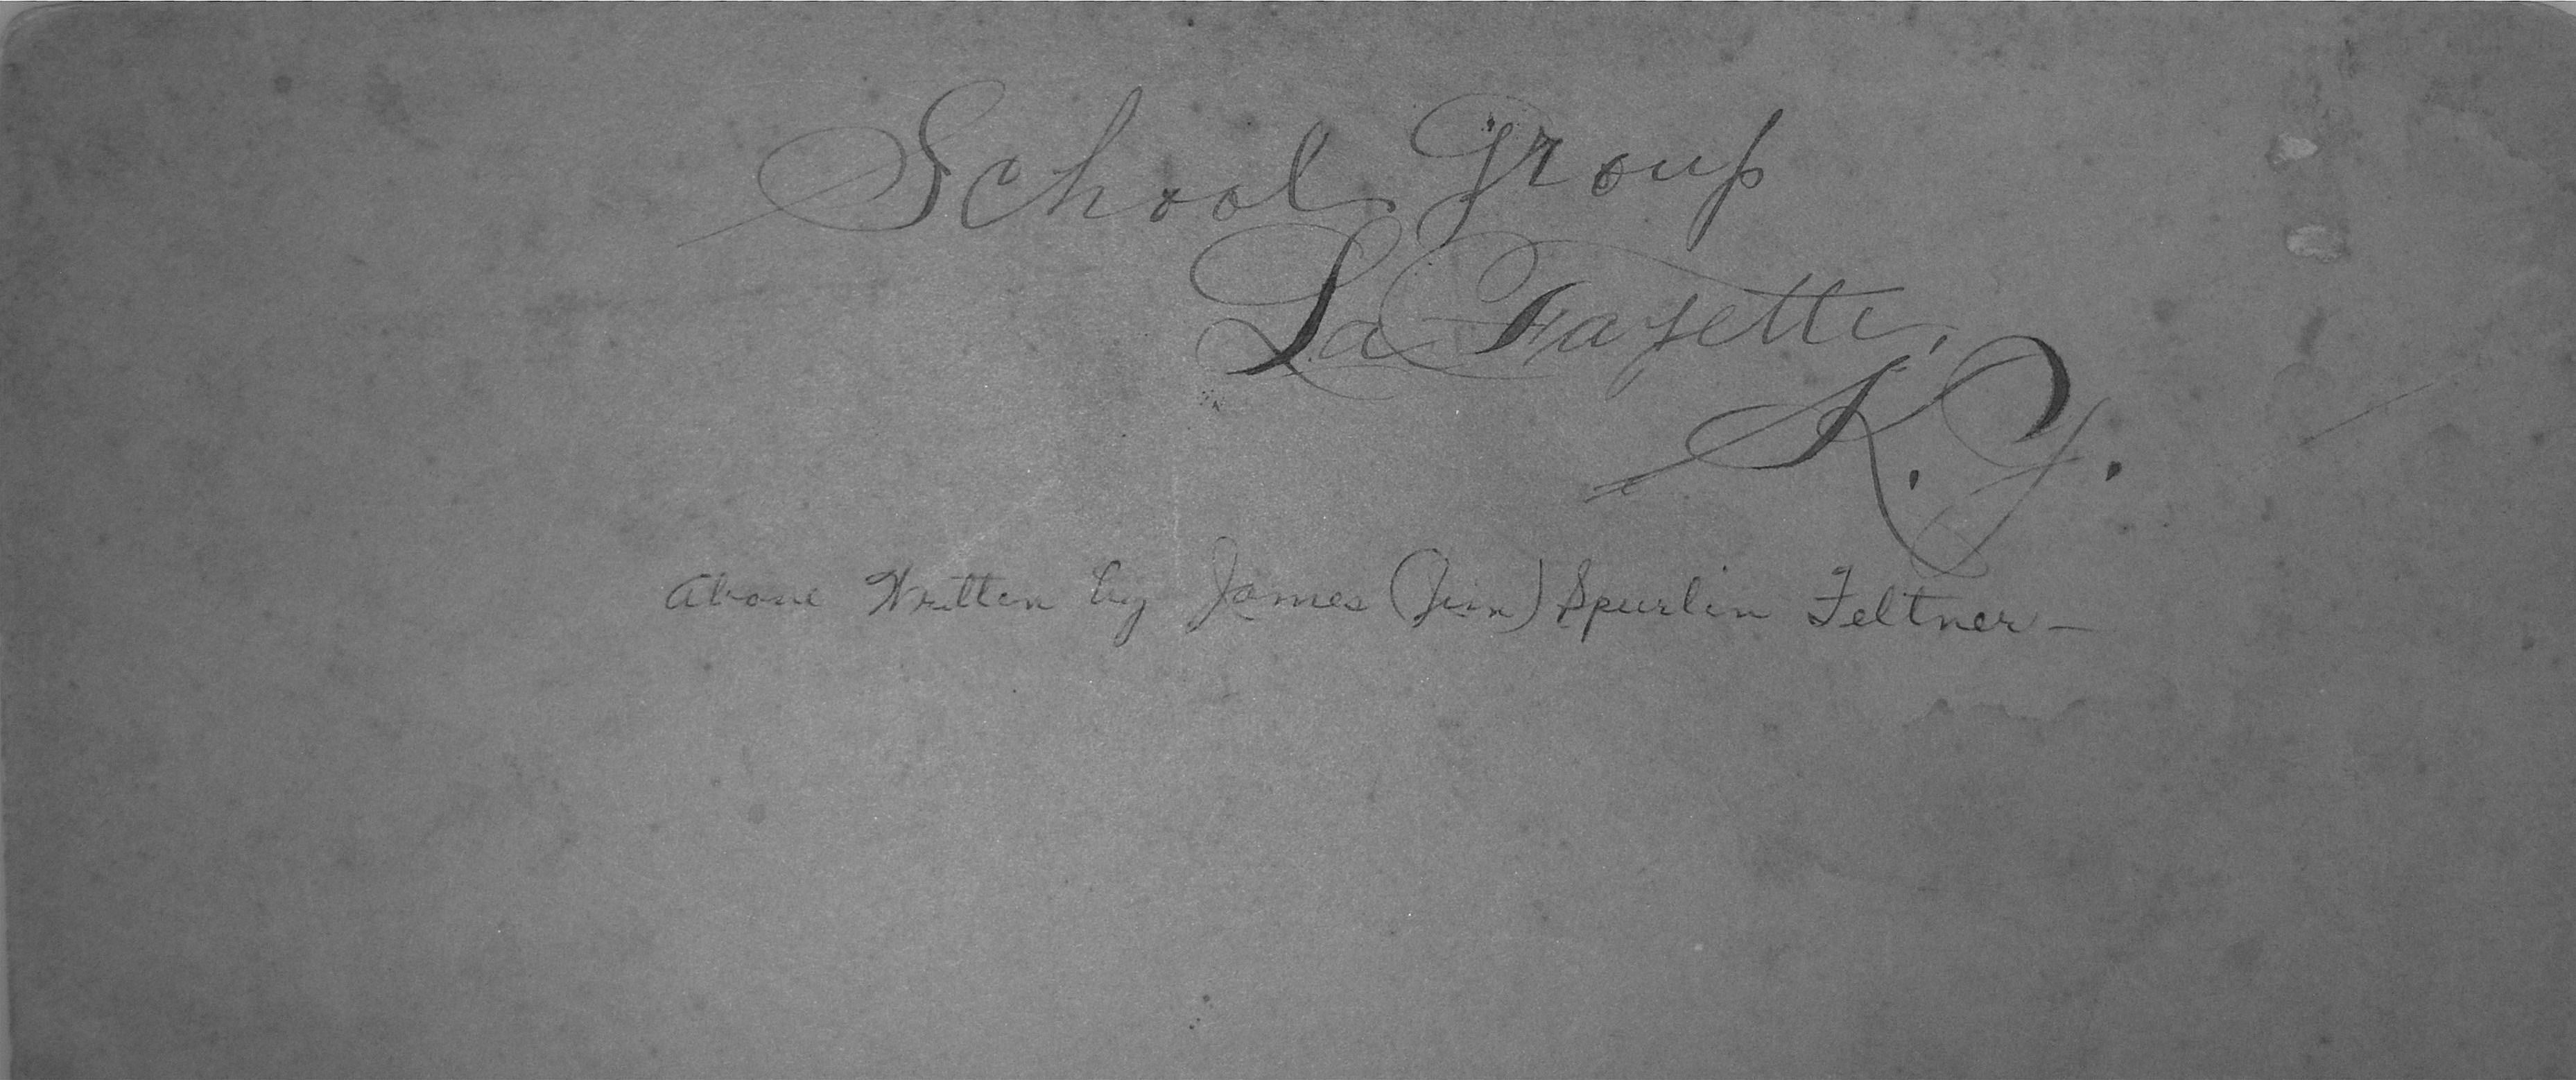 School Group
La Fayette,
K.Y.
Above Written by James (Jim) Spurlin Feltner—